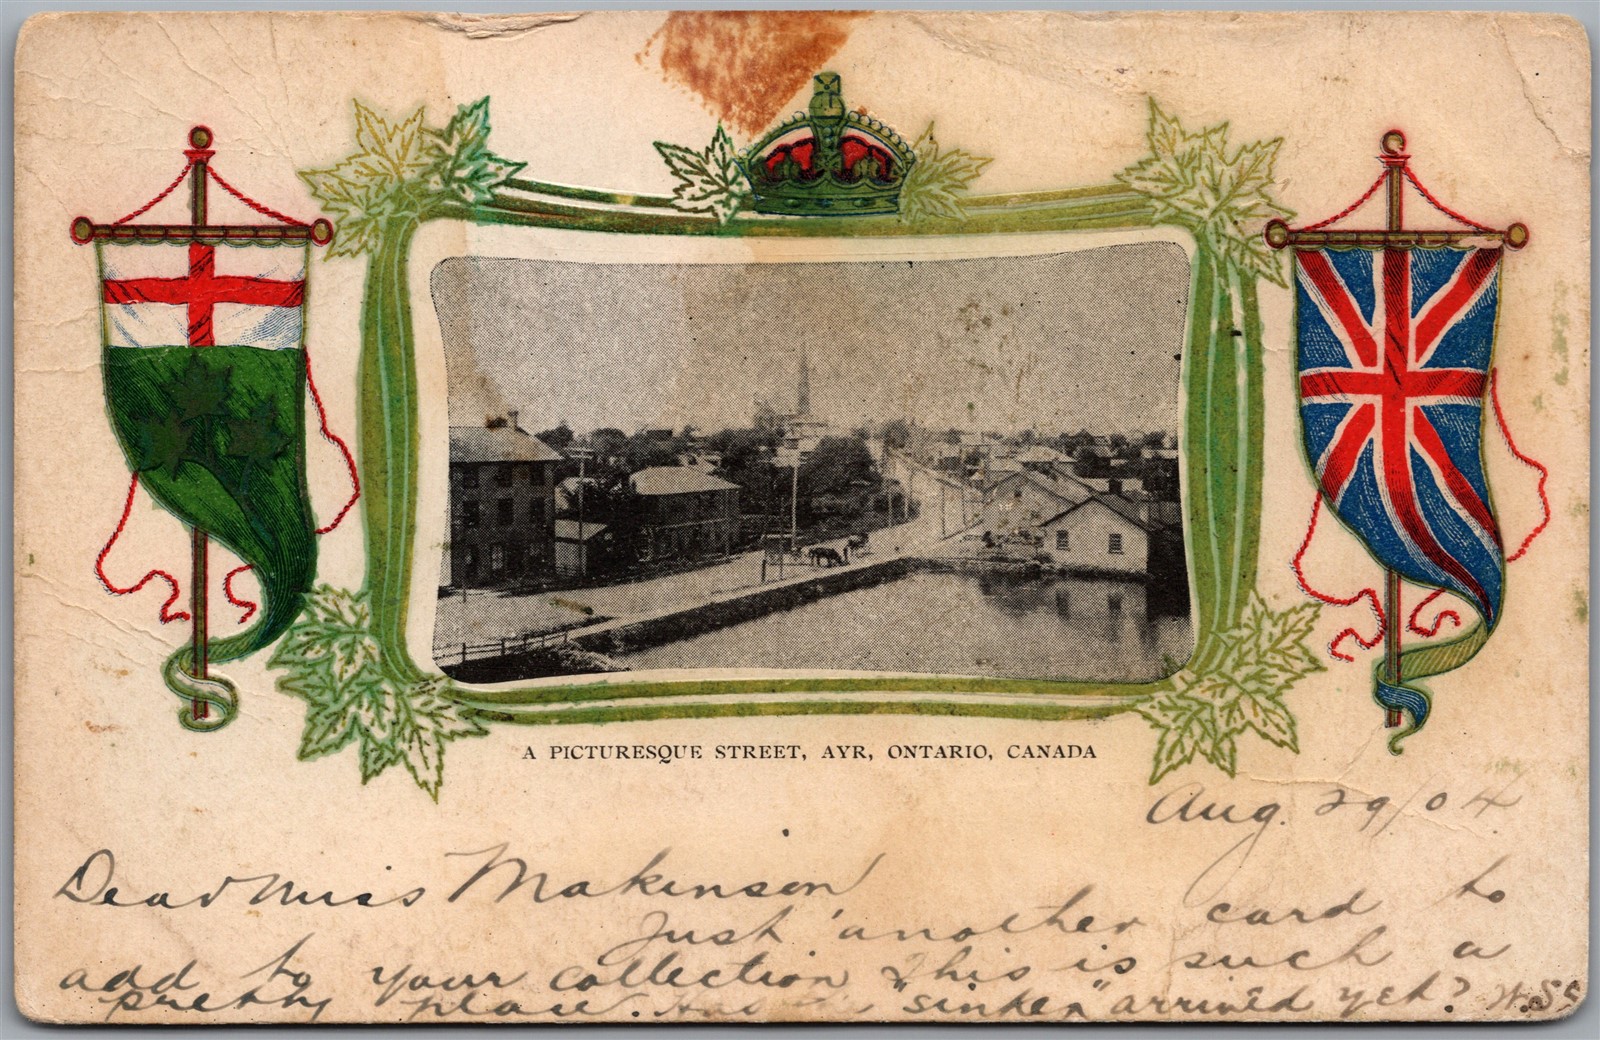 A PICTURESQUE STREET, AYR, ONTARIO, CANADA
Aug. 29/04.
Dear Miss Makinson
Just another card to
add to your collection This is such a
pretty place. Has "sinker" arrived yet?